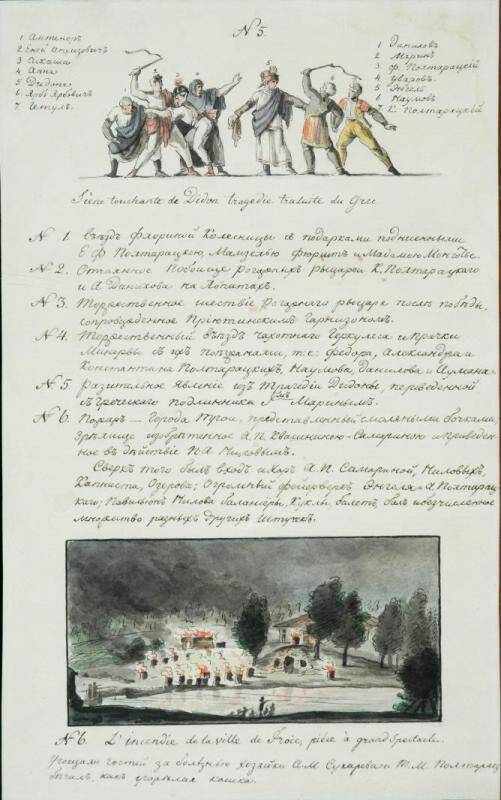 N 5.
1 Антеноръ
2 Еней Анхизовичъ
3 Аскани
4 Анна
5 Дидона
6 Ярбъ Ярбовичъ
7.
1 Даниловъ
2
3 Ф. Полтарацкій
4 Уваровъ
5 Энгель
6 Наумовъ
7 К. Полтарацкій
Scène touchante de Didon tragedie traduite du Grec
N 1. Въѣздъ Флориной Колесницы съ подарками поднесенными
Е. Ф. Полтарацкою, Мамзелью Фюрштъ и Мадамою
N 2. Отмѣнное Побоище рогатыхъ рыцарей К. Полтарацкаго
и А. Данилова на Лопатахъ.
N 3. Торжественное шествіе Рогатаго рыцаря послѣ побѣды,
сопровожденное Пріютинскимъ Гарнизономъ.
N 4. Торжественный въѣздъ чахотнаго Геркулеса и Прачки
Минервы съ ихъ т.е. Федора, Александра и
Константина Полтарацкихъ, Наумова, Данилова и
N 5. Разительное Явленіе изъ Трагедіи Дидоны, переведенной
съ Греческаго подлинника Маринымъ.
N 6. Пожаръ – Города Трои, представленный смоляными бочками,
Зрѣлище изобрѣтенное А. П. Квашниною-Самариною и приведен-
ное въ дѣйствіе П. А. Ниловымъ.
Сверхъ того былъ входъ и Хоръ А. П. Самариной, Ниловыхъ,
Капниста, Озерова; Огромный фейерверкъ Энгеля и А. Полтарац-
каго; Павильонъ Нилова балансёры, Куклы, балетъ, балъ и безчисленное
множество разныхъ другихъ Штучекъ.
N 6. L'incendie de la ville de Troie, pièce à grand Spectacle.
Угощали гостей за болѣзнью хозяйки А. М. Сухарева и Т. М. Полтарац.
бѣгалъ, какъ угорѣлая кошка.